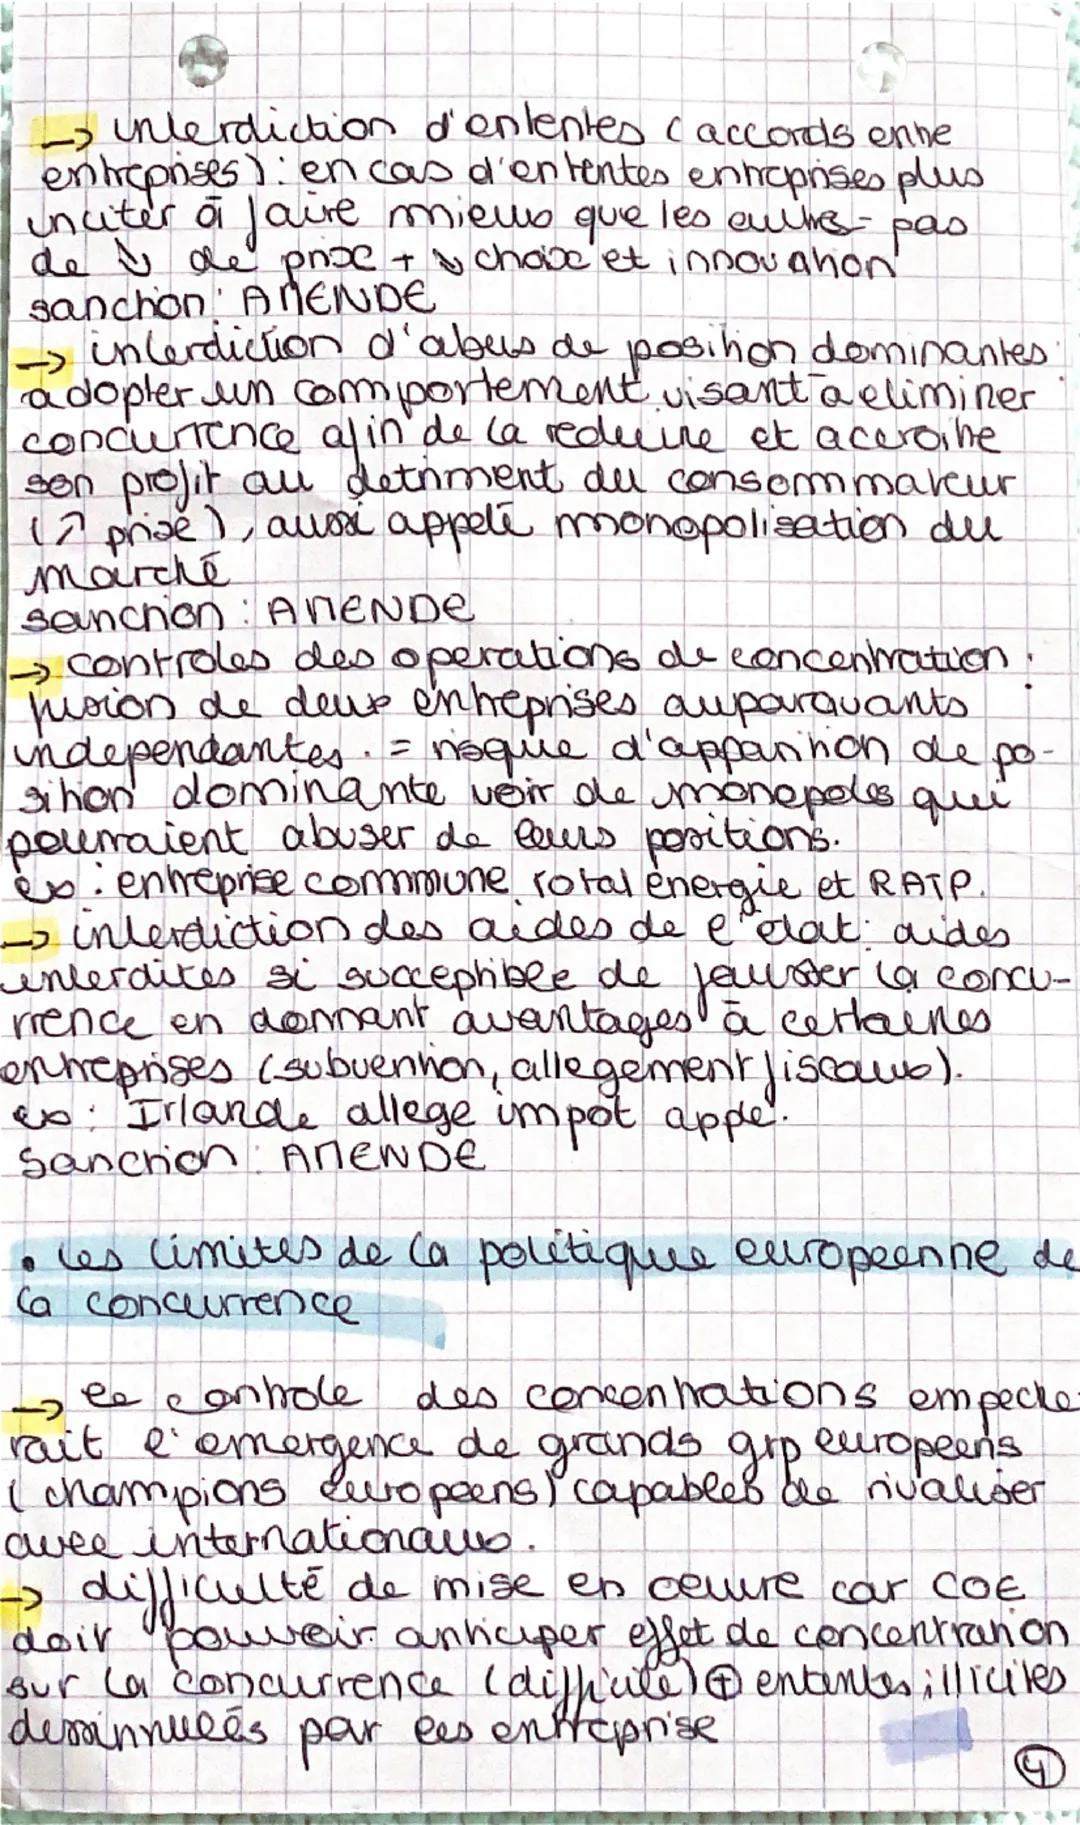 → interdiction d'ententes (accords entre
entreprises) : en cas d'ententes entreprises plus
inciter à faire mieux que les autres - pas
de ↘ de prix + ↘ choix et innovation
sanction : AMENDE
→ interdiction d'abus de position dominantes :
adopter un comportement visant à eliminer
concurrence afin de la reduire et accroitre
son profit au detriment du consommateur
(↗ prix), aussi appelé monopolisation du
marché
sanction : AMENDE
→ controles des operations de concentration :
fusion de deux entreprises auparavants
independantes. = risque d'apparition de po-
sition dominante voir de monopoles qui
pourraient abuser de leurs positions.
ex : entreprise commune total énergie et RATP.
→ interdiction des aides de l'état : aides
interdites si succeptible de fausser la concu-
rrence en donnant avantages à certaines
entreprises (subvention, allegement fiscaux).
ex : Irlande allege impot apple.
Sanction : AMENDE
• les limites de la politique europeenne de
la concurrence
→ le controle des concentrations empeche-
rait l'emergence de grands grp europeens
(champions europeens) capables de rivaliser
avec internationaux.
→ difficulté de mise en oeuvre car COE
doit pouvoir anticiper effet de concentration
sur la concurrence (difficile) ⊕ ententes illicites
dissimulées par les entreprise
④